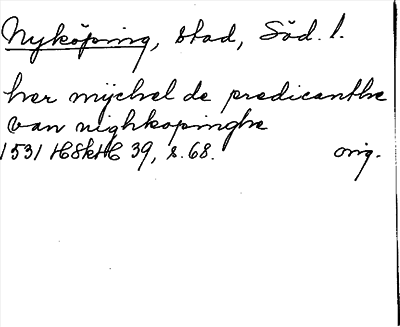 Nyköping, stad, Söd. l.
her mychel de predicanthe
van nighkopinghe
1531 HSkH 39, s. 68. orig.